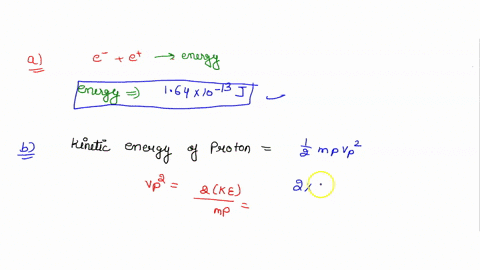 a) e⁻ + e⁺ → energy
energy ⇒ 1.64 × 10⁻¹³ J
b) Kinetic energy of Proton = 1/2 mp vp²
vp² = 2(KE)/mp = 2